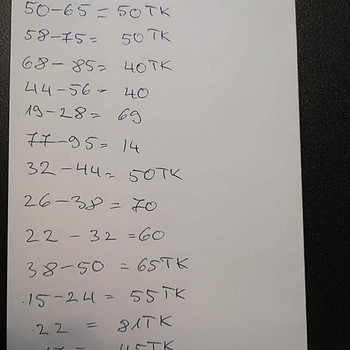 50-65 = 50TK
58-75= 50TK
68-85= 40TK
44-56= 40
19-28= 69
77-95= 14
32-44= 50TK
26-38= 70
22 - 32 =60
38-50 = 65TK
15-24= 55TK
22 = 81TK